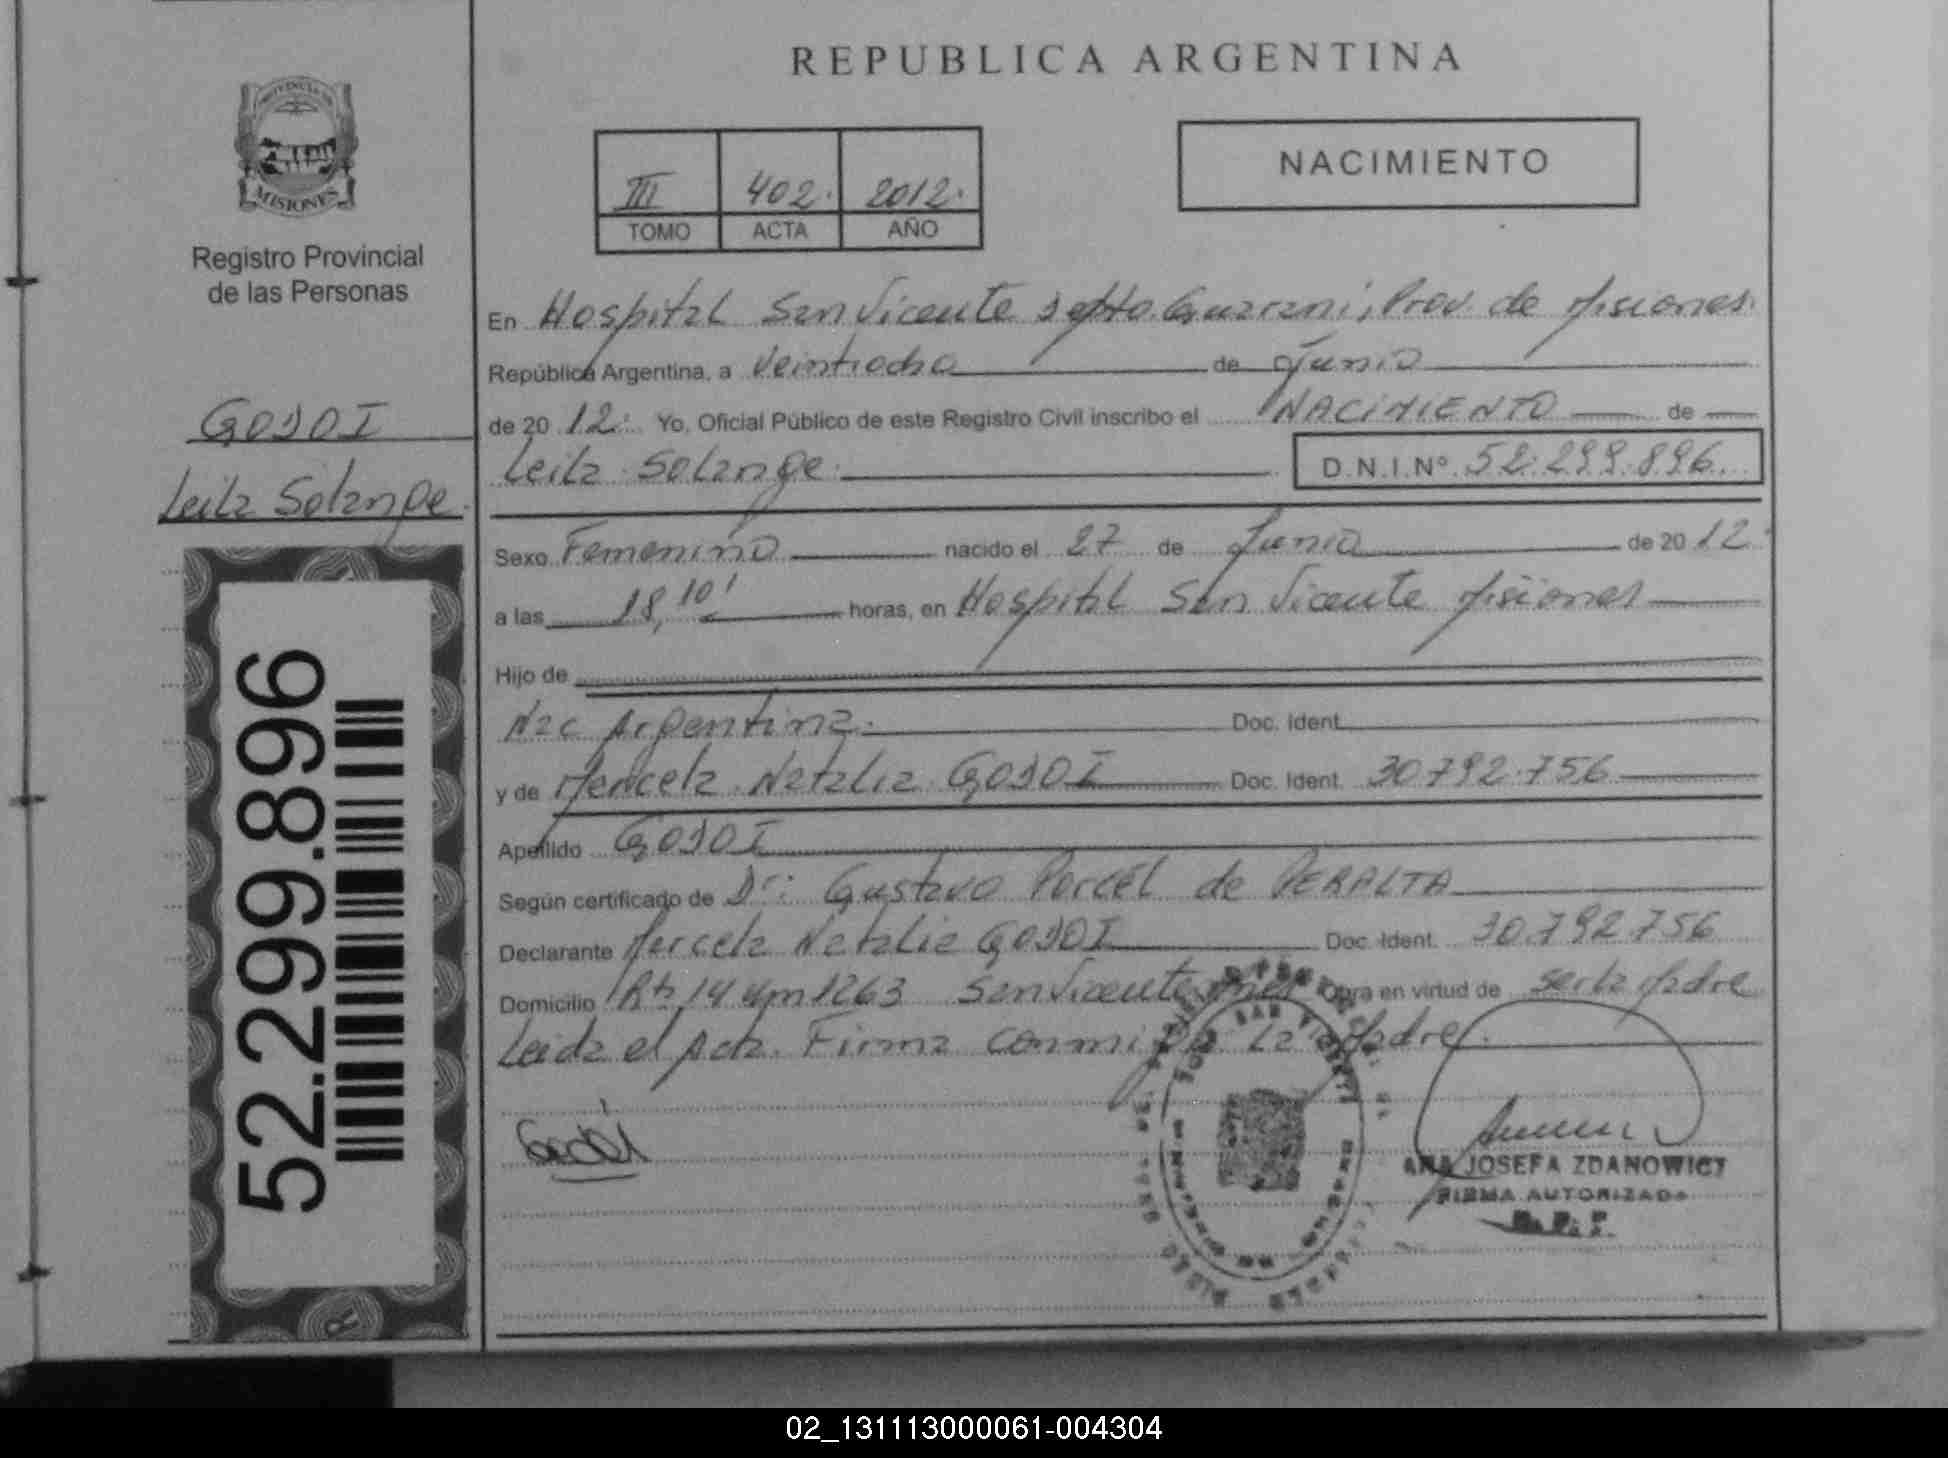 REPUBLICA ARGENTINA
PROVINCIA DE
MISIONES
Registro Provincial
de las Personas
GODOI
Leila Solange.
52.299.896
R
III 402. 2012.
TOMO ACTA AÑO
NACIMIENTO
En Hospital San Vicente Dpto. Guaraní, Prov. de Misiones.
República Argentina, a Veintiocho de Junio
de 20 12. Yo, Oficial Público de este Registro Civil inscribo el NACIMIENTO de
Leila Solange. D.N.I.Nº 52.299.896.
Sexo Femenino nacido el 27 de Junio de 20 12.
a las 18,10' horas, en Hospital San Vicente Misiones
Hijo de
Nac Argentina. Doc. Ident.
y de Marcela Natalia GODOI Doc. Ident. 30.792.756
Apellido GODOI
Según certificado de Dr: Gustavo Porcel de PERALTA
Declarante Marcela Natalia GODOI Doc. Ident. 30.792.756
Domicilio Rta 14 Km 1263 San Vicente Obra en virtud de ser la Madre
Leida el Acta. Firma conmigo La Madre.
Godoi
SAN VICENTE
ANA JOSEFA ZDANOWICZ
FIRMA AUTORIZADA
R. P. P.
02_131113000061-004304